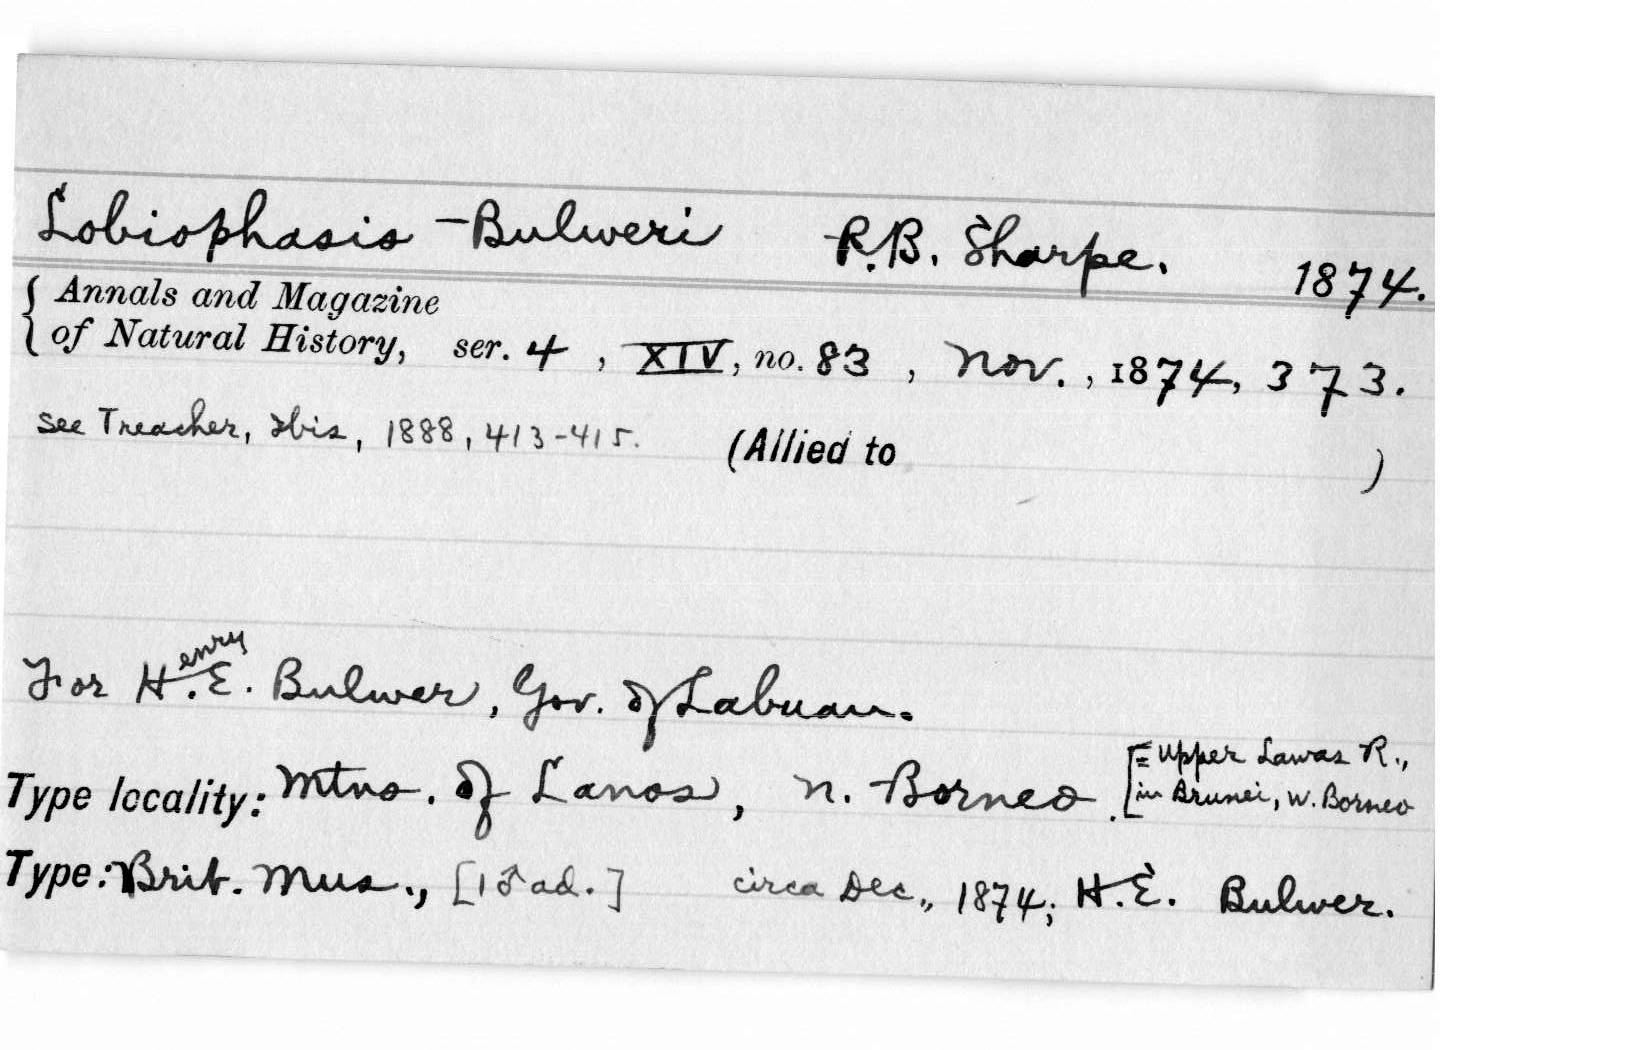 Lobiophasis Bulweri R.B. Sharpe. 1874.
{ Annals and Magazine
of Natural History, ser. 4, XIV, no. 83, Nov., 1874, 373.
see Treacher, Ibis, 1888, 413-415. (Allied to )
enry
For H.E. Bulwer, Gov. of Labuan.
Type locality: Mtns. of Lanas, N. Borneo. [= Upper Lawas R.,
in Brunei, W. Borneo
Type: Brit. Mus., [1♂ad.] circa Dec., 1874; H.E. Bulwer.